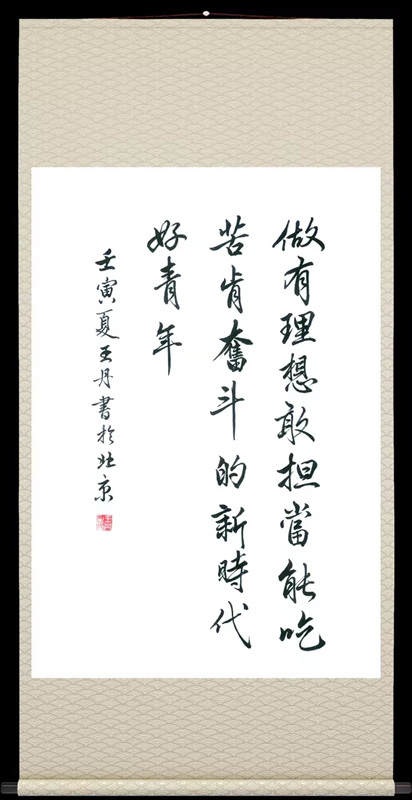 做有理想敢担當能吃
苦肯奮斗的新時代
好青年
壬寅夏王丹書於北京